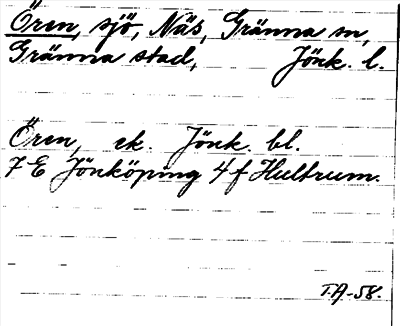 Ören, sjö, Näs, Gränna sn,
Gränna stad, Jönk. l.
Ören, ek. Jönk. bl.
7 E Jönköping 4 f Hultrum.
T.A-58.